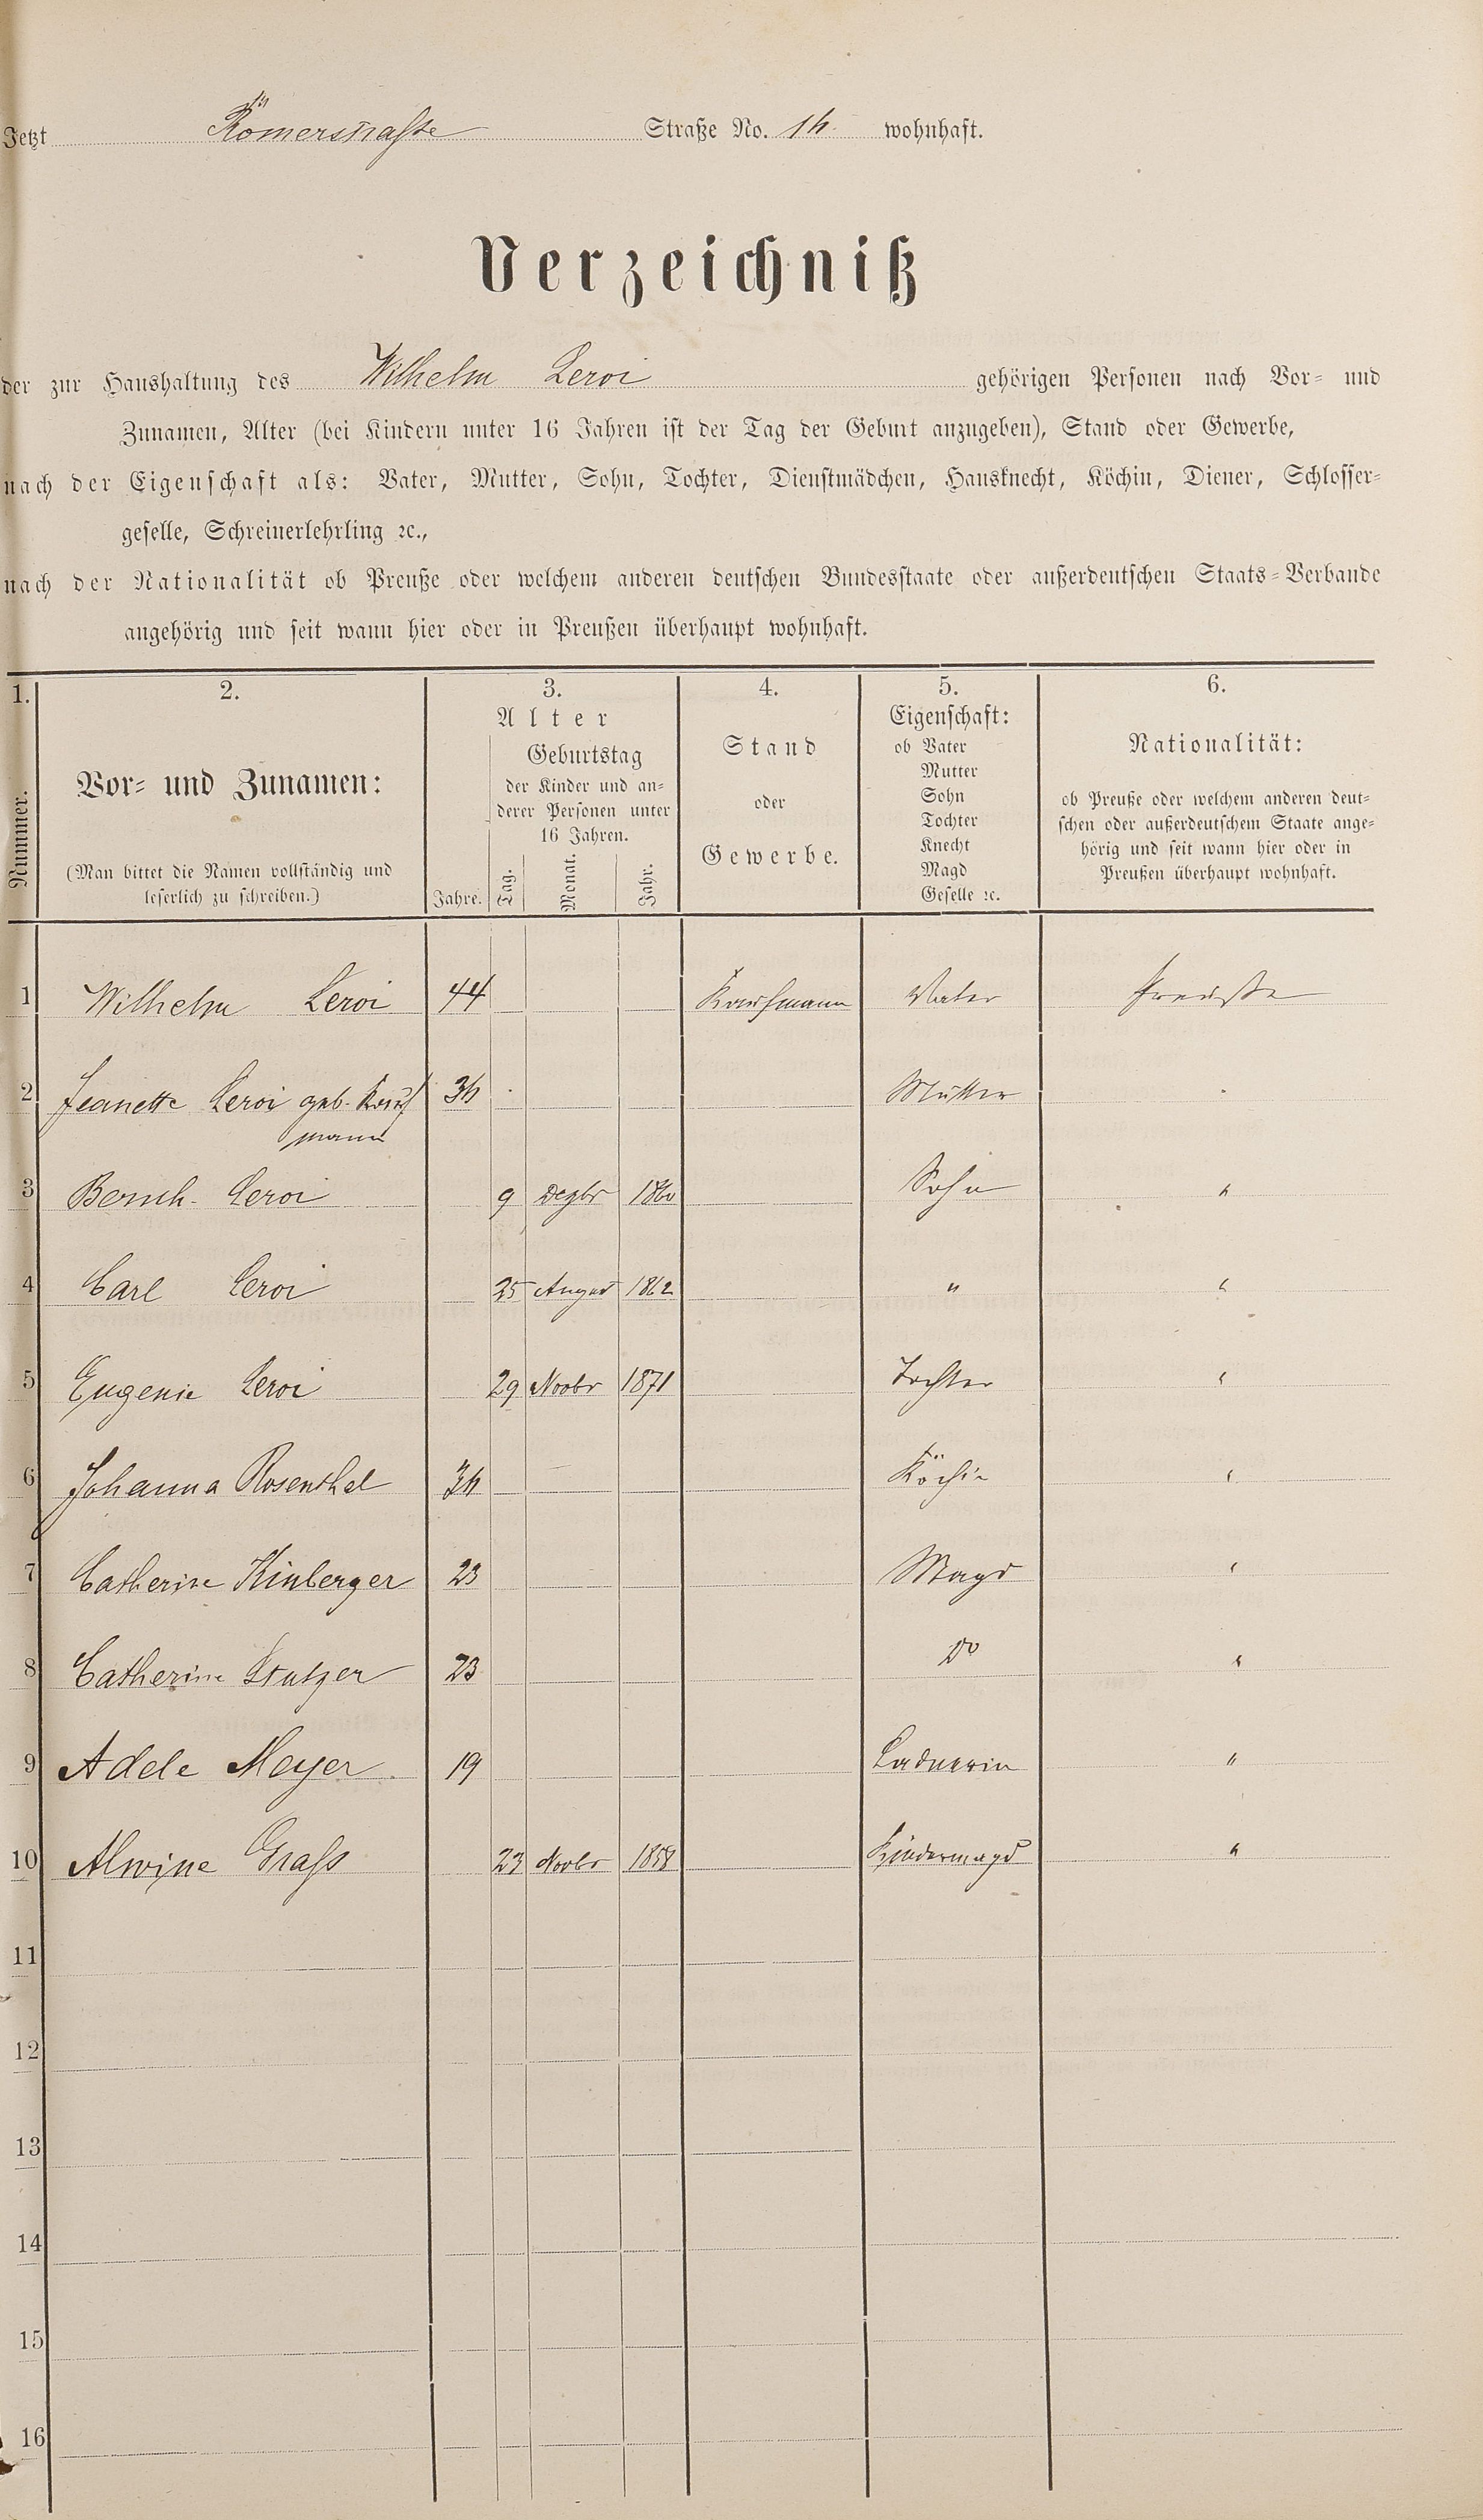 Jetzt Römerstraße Straße No. 14 wohnhaft.
Verzeichniß
der zur Haushaltung des Wilhelm Leroi gehörigen Personen nach Vor- und
Zunamen, Alter (bei Kindern unter 16 Jahren ist der Tag der Geburt anzugeben), Stand oder Gewerbe,
nach der Eigenschaft als: Vater, Mutter, Sohn, Tochter, Dienstmädchen, Hausknecht, Köchin, Diener, Schlosser-
geselle, Schreinerlehrling ꝛc.,
nach der Nationalität ob Preuße oder welchem anderen deutschen Bundesstaate oder außerdeutschen Staats-Verbande
angehörig und seit wann hier oder in Preußen überhaupt wohnhaft.
1. 2. 3. 4. 5. 6.
Nummer.
Vor- und Zunamen:
(Man bittet die Namen vollständig und
leserlich zu schreiben.)
Alter
Jahre.
Geburtstag
der Kinder und an-
derer Personen unter
16 Jahren.
Tag. Monat. Jahr.
Stand
oder
Gewerbe.
Eigenschaft:
ob Vater
Mutter
Sohn
Tochter
Knecht
Magd
Geselle ꝛc.
Nationalität:
ob Preuße oder welchem anderen deut-
schen oder außerdeutschem Staate ange-
hörig und seit wann hier oder in
Preußen überhaupt wohnhaft.
1 Wilhelm Leroi 44 Kaufmann Vater Preuße
2 Jeanette Leroi geb. Kauf 34 Mutter
mann
3 Leroi 9 Dezbr 1860 Sohn "
4 Carl Leroi 25 August 1862 " "
5 Eugenie Leroi 29 Novbr 1871 Tochter "
6 Johanna Rosenthal 34 Köchin "
7 Catherine Kinberger 23 Magd "
8 Catherine Stutzer 23 do "
9 Adele Meyer 19 Ladnerin "
10 Alwine Grass 23 Novbr 1858 Kindermagd "
11
12
13
14
15
16